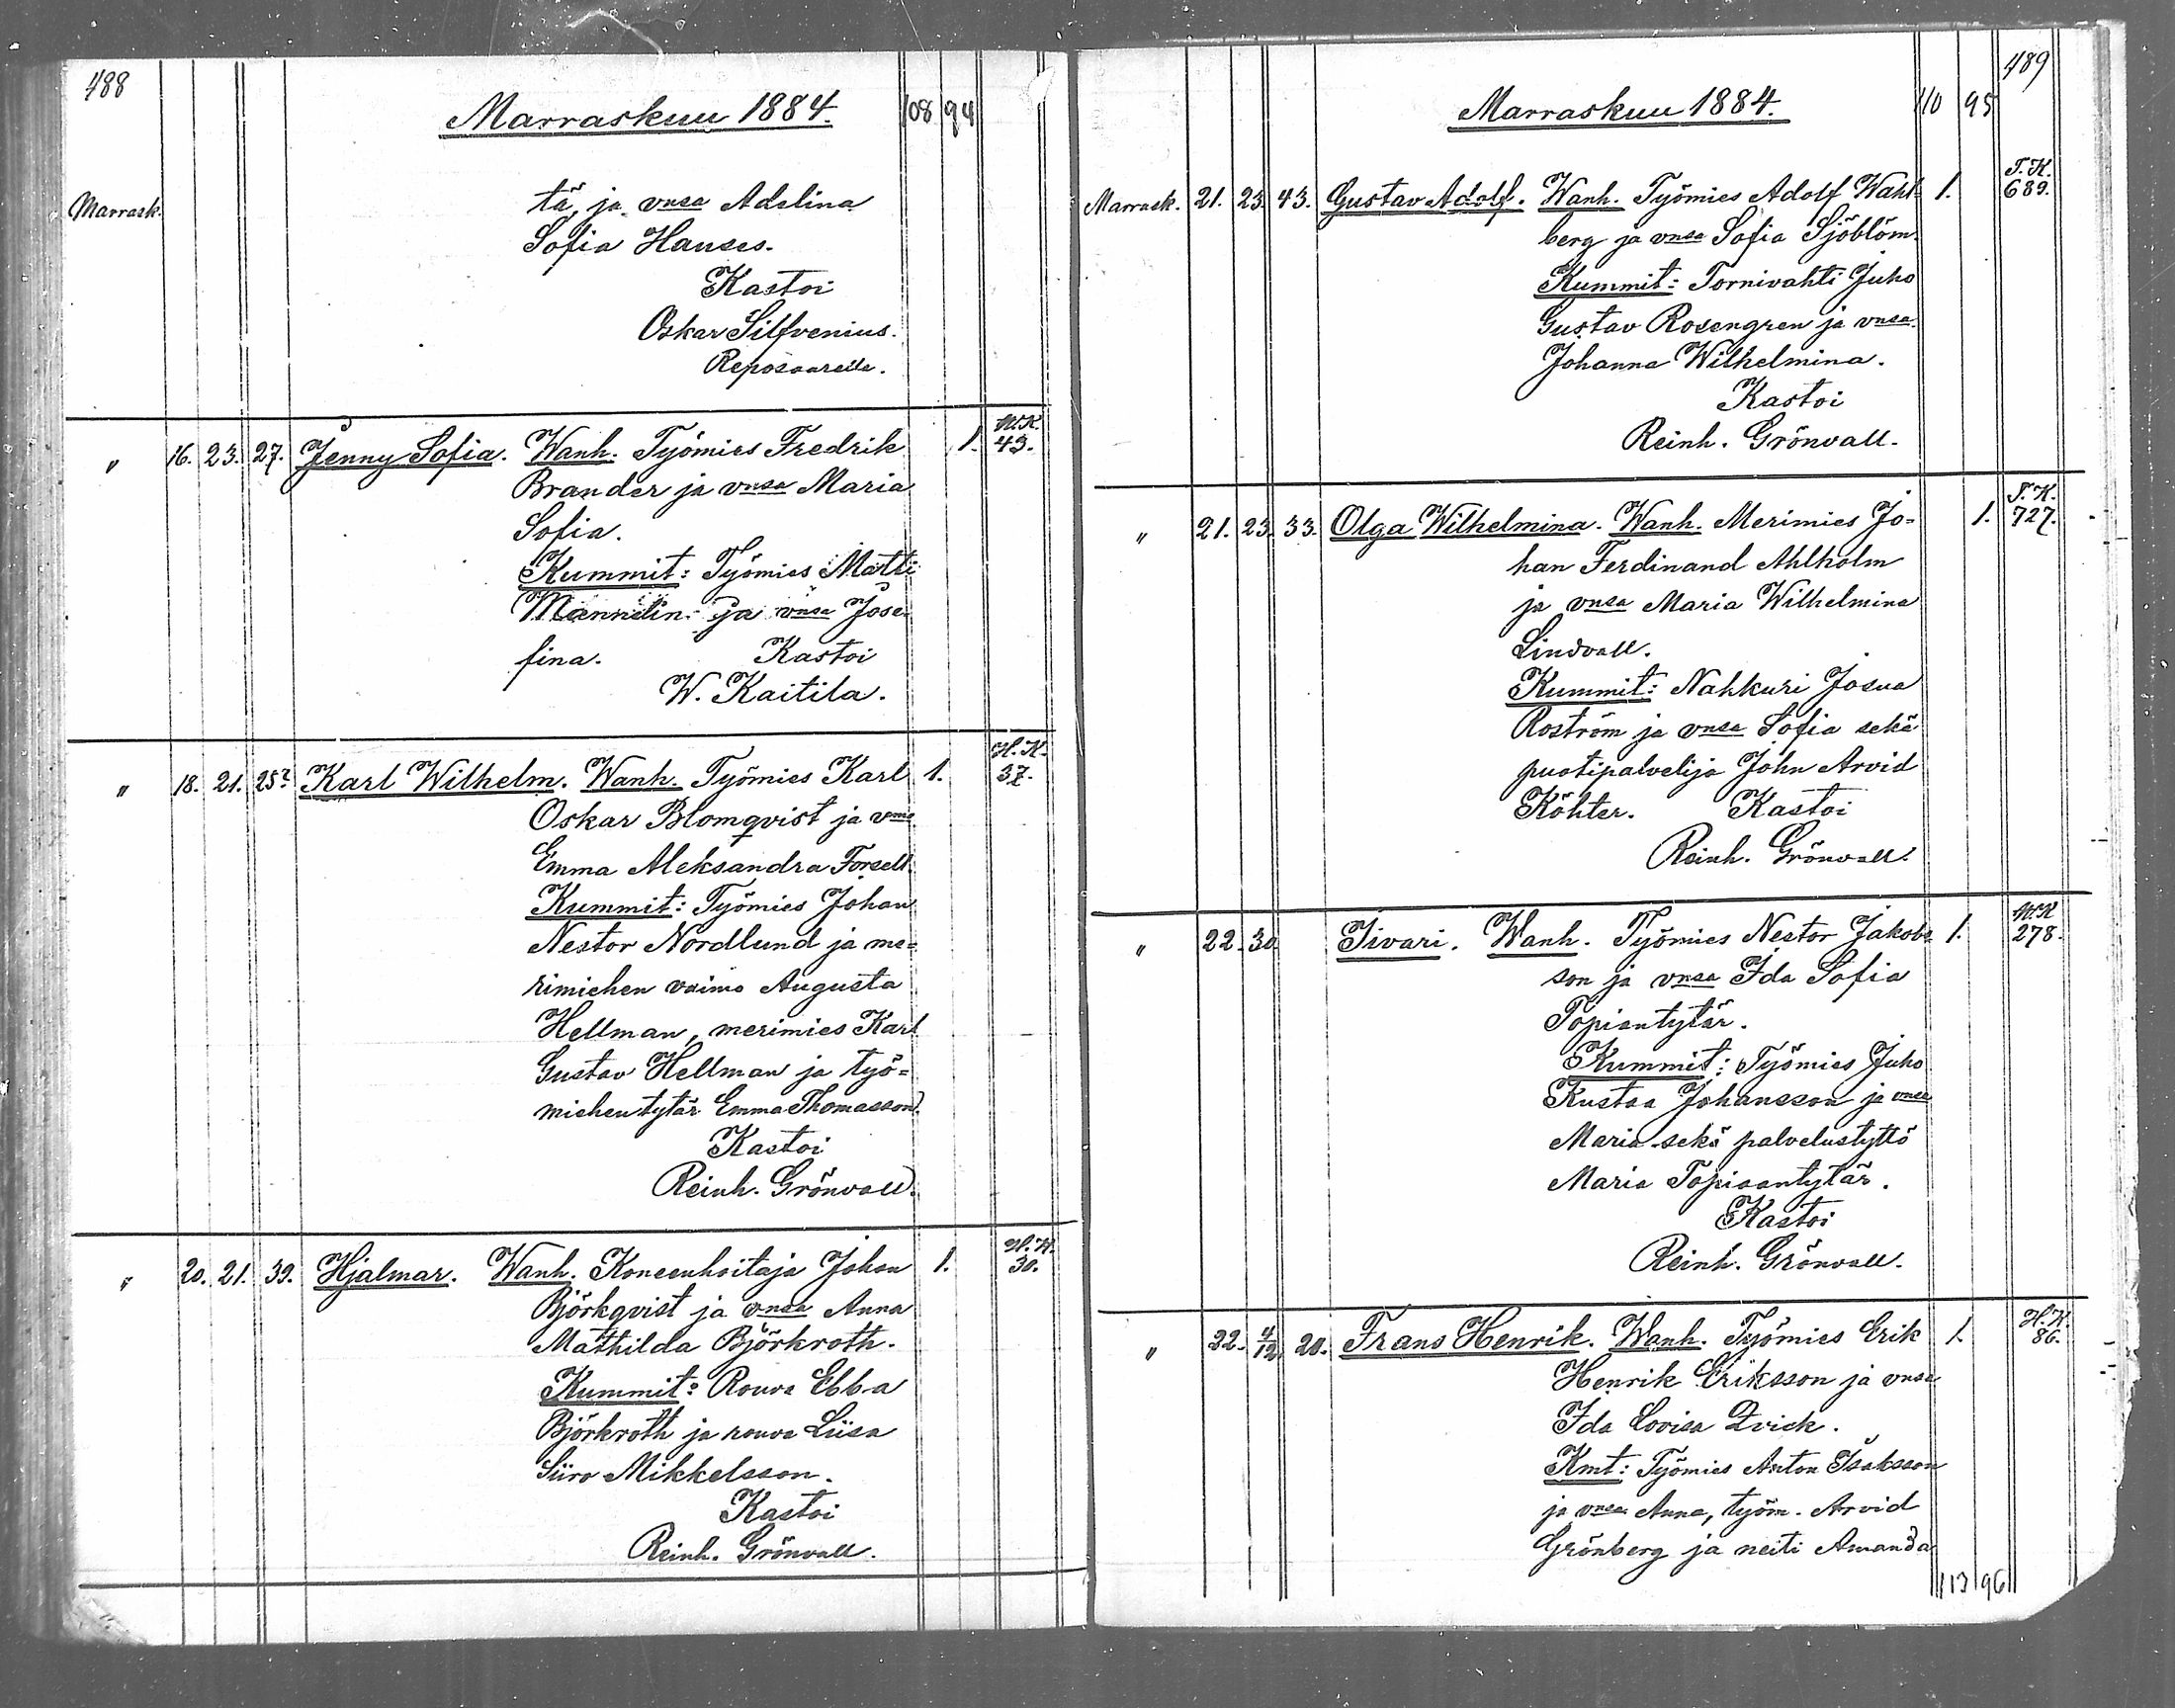 488
Marraskuu 1884. 108 94
Marrask. tä, ja vnsa Adelina
Sofia Hanses.
Kastoi
Oskar Silfvenius.
Reposaarella.
" 16. 23. 27. Jenny Sofia. Wanh. Työmies Fredrik 1. W.K. 43.
Brander ja vnsa Maria
Sofia.
Kummit: Työmies Matti
Mannelin ja vnsa Jose-
fina. Kastoi
W. Kaitila.
" 18. 21. 25? Karl Wilhelm. Wanh. Työmies Karl 1. H.K. 37.
Oskar Blomqvist ja vnsa
Emma Aleksandra Forsell.
Kummit: Työmies Johan
Nestor Nordlund ja me=
rimiehen vaimo Augusta
Hellman, merimies Karl
Gustav Hellman ja työ=
miehen tytär Emma Thomasson.
Kastoi
Reinh. Grönvall.
" 20. 21. 39. Hjalmar. Wanh. Koneenhoitaja Johan 1. H.K. 30.
Björkqvist ja vnsa Anna
Mathilda Björkroth.
Kummit: Rouva Ebba
Björkroth ja rouva Liisa
Siiro Mikkelsson.
Kastoi
Reinh. Grönvall.
489
Marraskuu 1884. 110 95
Marrask. 21. 23. 43. Gustav Adolf. Wanh. Työmies Adolf Wahl- 1. T.K. 689.
berg ja vnsa Sofia Sjöblöm.
Kummit: Tornivahti Juho
Gustav Rosengren ja vnsa
Johanna Wilhelmina.
Kastoi
Reinh. Grönvall.
" 21. 23. 33. Olga Wilhelmina. Wanh. Merimies Jo= 1. T.K. 727.
han Ferdinand Ahlholm
ja vnsa Maria Wilhelmina
Lindvall.
Kummit: Nahkuri Josua
Roström ja vnsa Sofia sekä
puotipalvelija John Arvid
Köhter. Kastoi
Reinh. Grönvall.
" 22. 30. Iivari. Wanh. Työmies Nestor Jakobs- 1. W.K 278.
son ja vnsa Ida Sofia
Topiantytär.
Kummit: Työmies Juho
Kustaa Johansson ja vnsa
Maria sekä palvelustyttö
Maria Topiaantytär.
Kastoi
Reinh. Grönvall.
" 22. 4/12 20. Frans Henrik. Wanh. Työmies Erik 1. H.K. 86.
Henrik Eriksson ja vnsa
Ida Lovisa Qvick.
Kmt: Työmies Anton Isaksson
ja vnsa Anna, työm. Arvid
Grönberg ja neiti Amanda
113 96